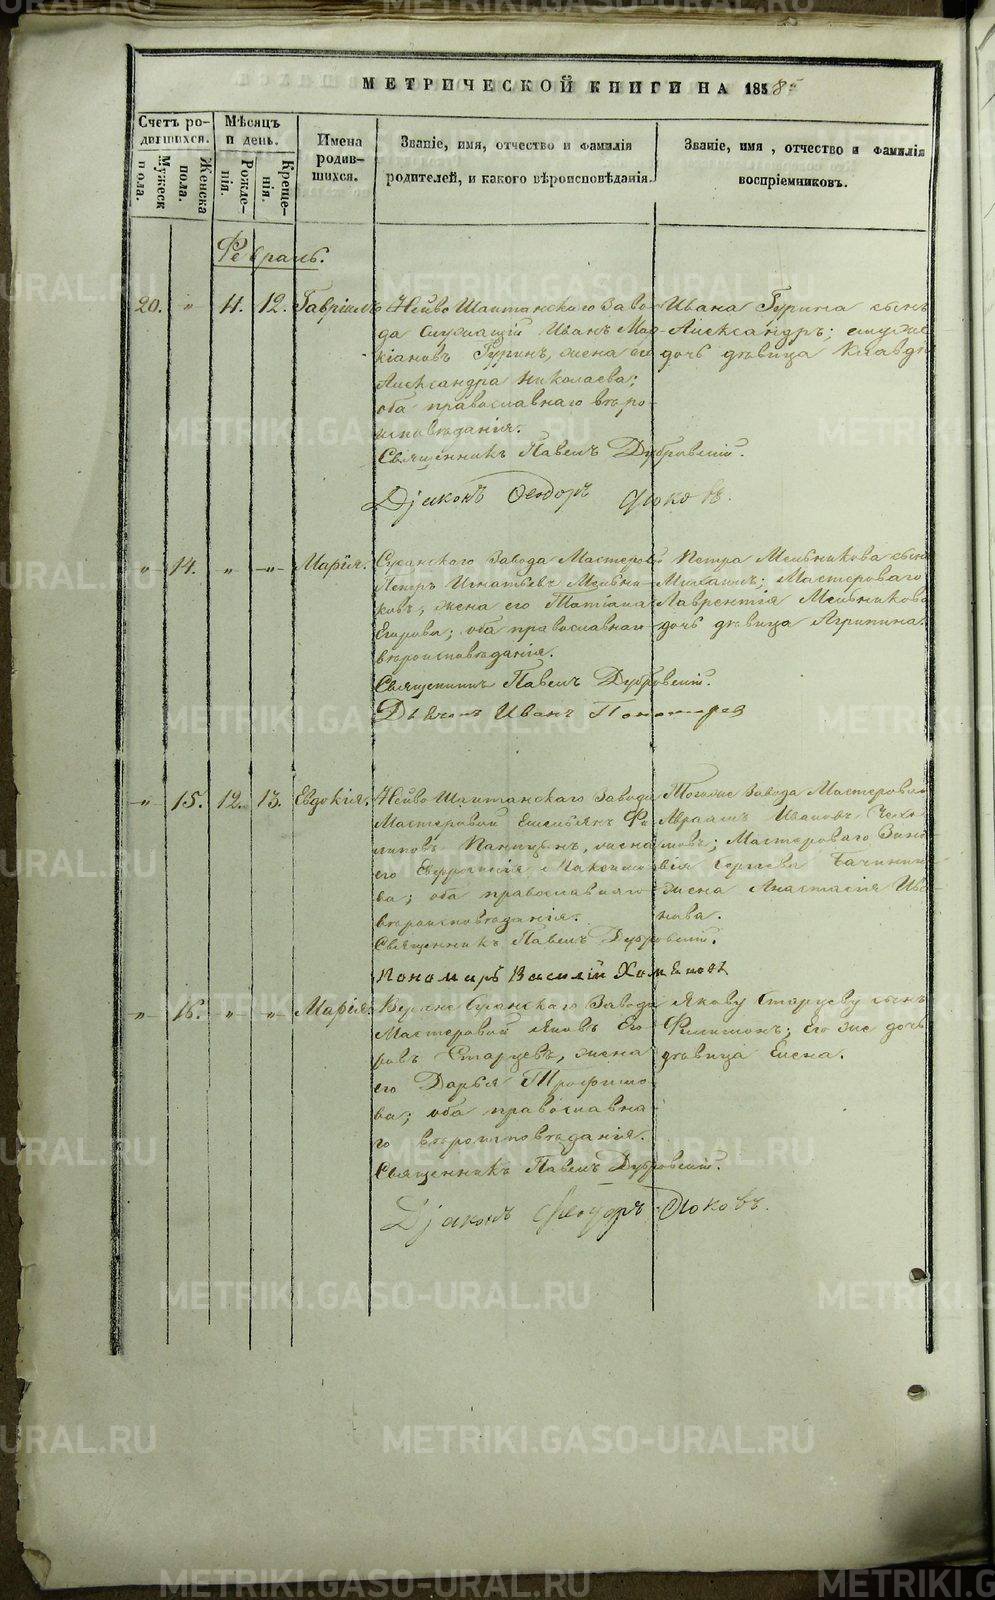 МЕТРИЧЕСКОЙ КНИГИ НА 1858
Счетъ родившихся.
Мужеска пола.
Женска пола.
Мѣсяцъ и день.
Рожденія.
Крещенія.
Имена родившихся.
Званіе, имя, отчество и фамилія родителей, и какого вѣроисповѣданія.
Званіе, имя, отчество и фамилія воспріемниковъ.
Февраль.
20. " 11. 12. Гавріилъ
Нейво Шайтанскаго Заво-
да Служащій Иванъ
Гуринъ, жена его
Александра Николаева;
оба православнаго вѣро-
исповѣданія.
Священникъ Павелъ Дубровскій.
Діаконъ Ѳеодоръ
Ивана Гурина сынъ
Александръ;
дочь дѣвица Клавдія
" 14. " " Марія.
Сусанскаго Завода Мастеровой
Петръ Игнатьевъ Мельни-
ковъ, жена его Татіана
Егорова; оба православнаго
вѣроисповѣданія.
Священникъ Павелъ Дубровскій.
Дьячекъ Иванъ Пономарев
Петра Мельникова сынъ
Михаилъ; Мастероваго
Лаврентія Мельникова
дочь дѣвица Агрипина.
" 15. 12. 13. Евдокія.
Нейво Шайтанскаго Завода
Мастеровой Емельянъ Фи-
липовъ жена
его Евфросинія Максимо-
ва; оба православнаго
вѣроисповѣданія.
Священникъ Павелъ Дубровскій.
Пономарь Василій Хомяковъ
Тогоже Завода Мастеровой
Авраамъ Ивановъ
Мастероваго Зино-
вія Сергѣева
жена Анастасія Ива-
нова.
" 16. " " Марія.
Верхне Сусанскаго Завода
Мастеровой Яковъ Его-
ровъ Старцевъ, жена
его Дарья Трофимо-
ва; оба православна-
го вѣроисповѣданія.
Священникъ Павелъ Дубровскій.
Діаконъ Ѳеодоръ
Якову Старцеву сынъ
Филимонъ; его же дочь
дѣвица Елена.
METRIKI.GASO-URAL.RU